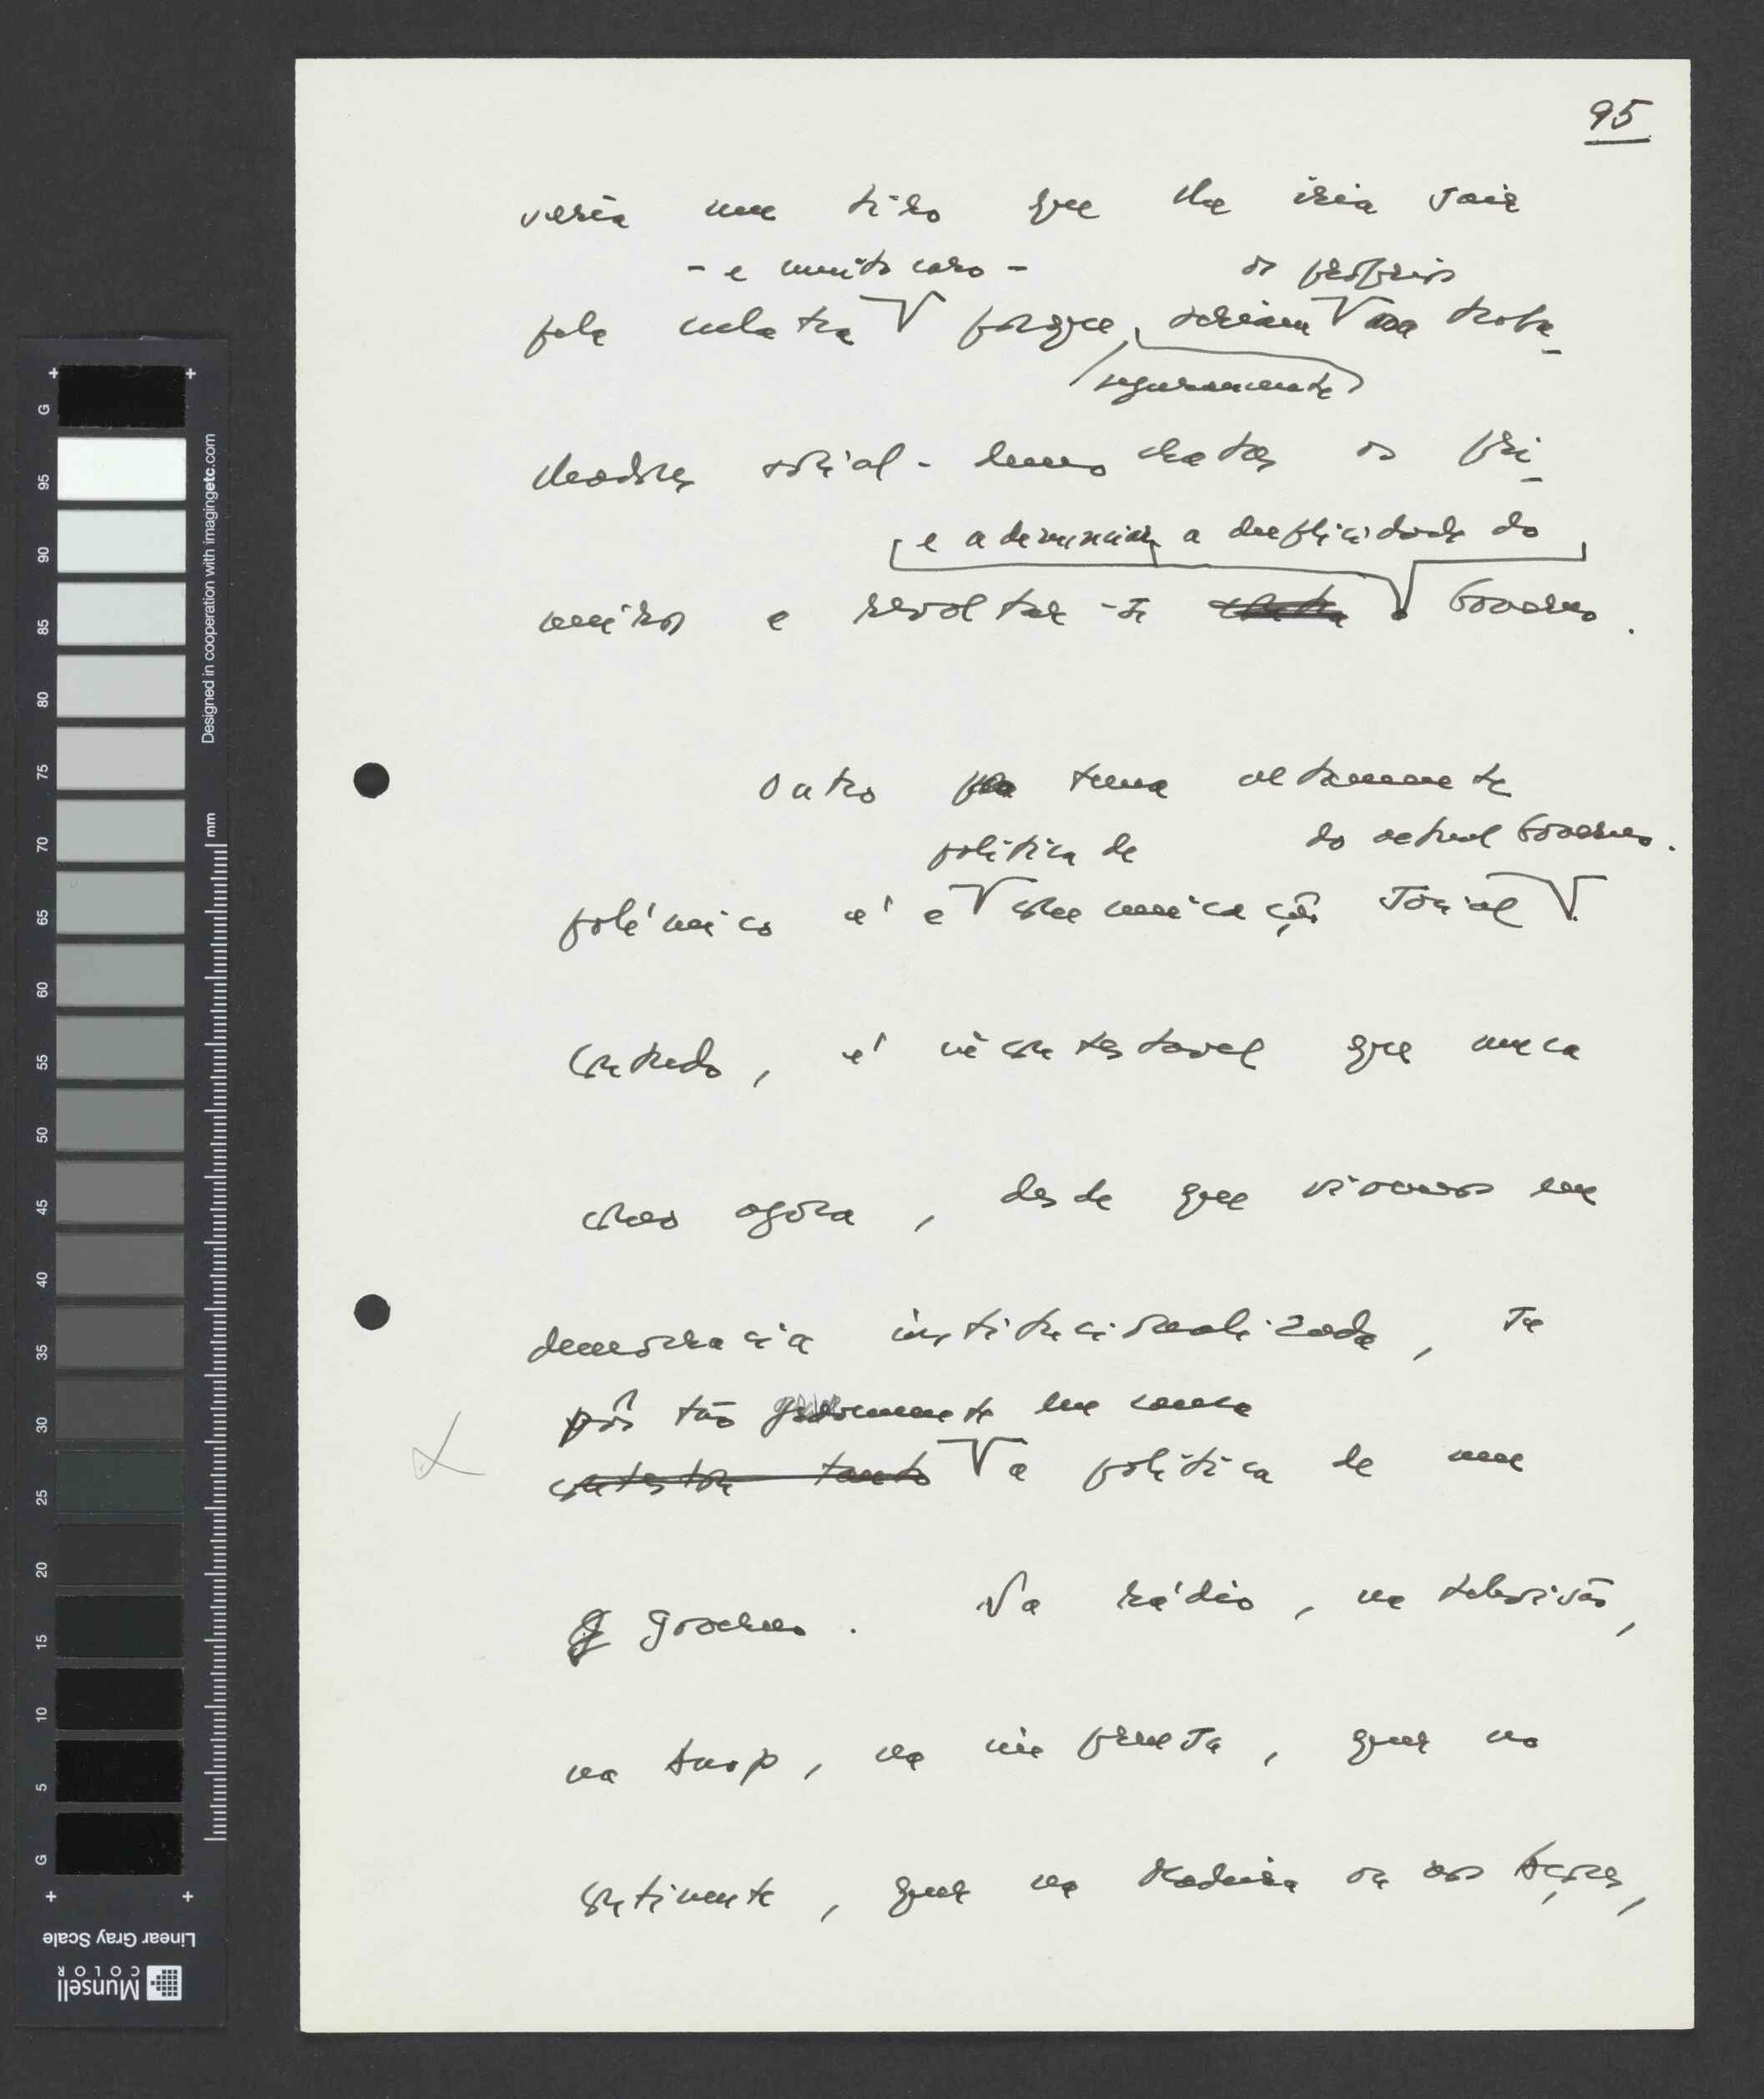 95
veria um tiro que lhe iria sair
- e muito caro -
os próprios
pela culatra porque, seriam os traba-
seguramente
lhadores social-democratas os pri-
e a denunciar a duplicidade do
meiros a revoltar-se Governo.
Outro tema altamente
política de
do actual Governo.
polémico é a comunicação social
Contudo, é incontestável que nunca
como agora, desde que vivemos em
democracia institucionalizada, se
pôs tão em causa
contestou tanto a política de um
governo. Na rádio, na televisão,
na Anop, na imprensa, quer no
continente, quer na Madeira ou nos Açores,
G 95 90 85 80 75 70 65 60 55 50 45 40 35 30 25 20 15 10 5 G
Designed in cooperation with imagingetc.com
mm
Linear Gray Scale
Munsell
COLOR